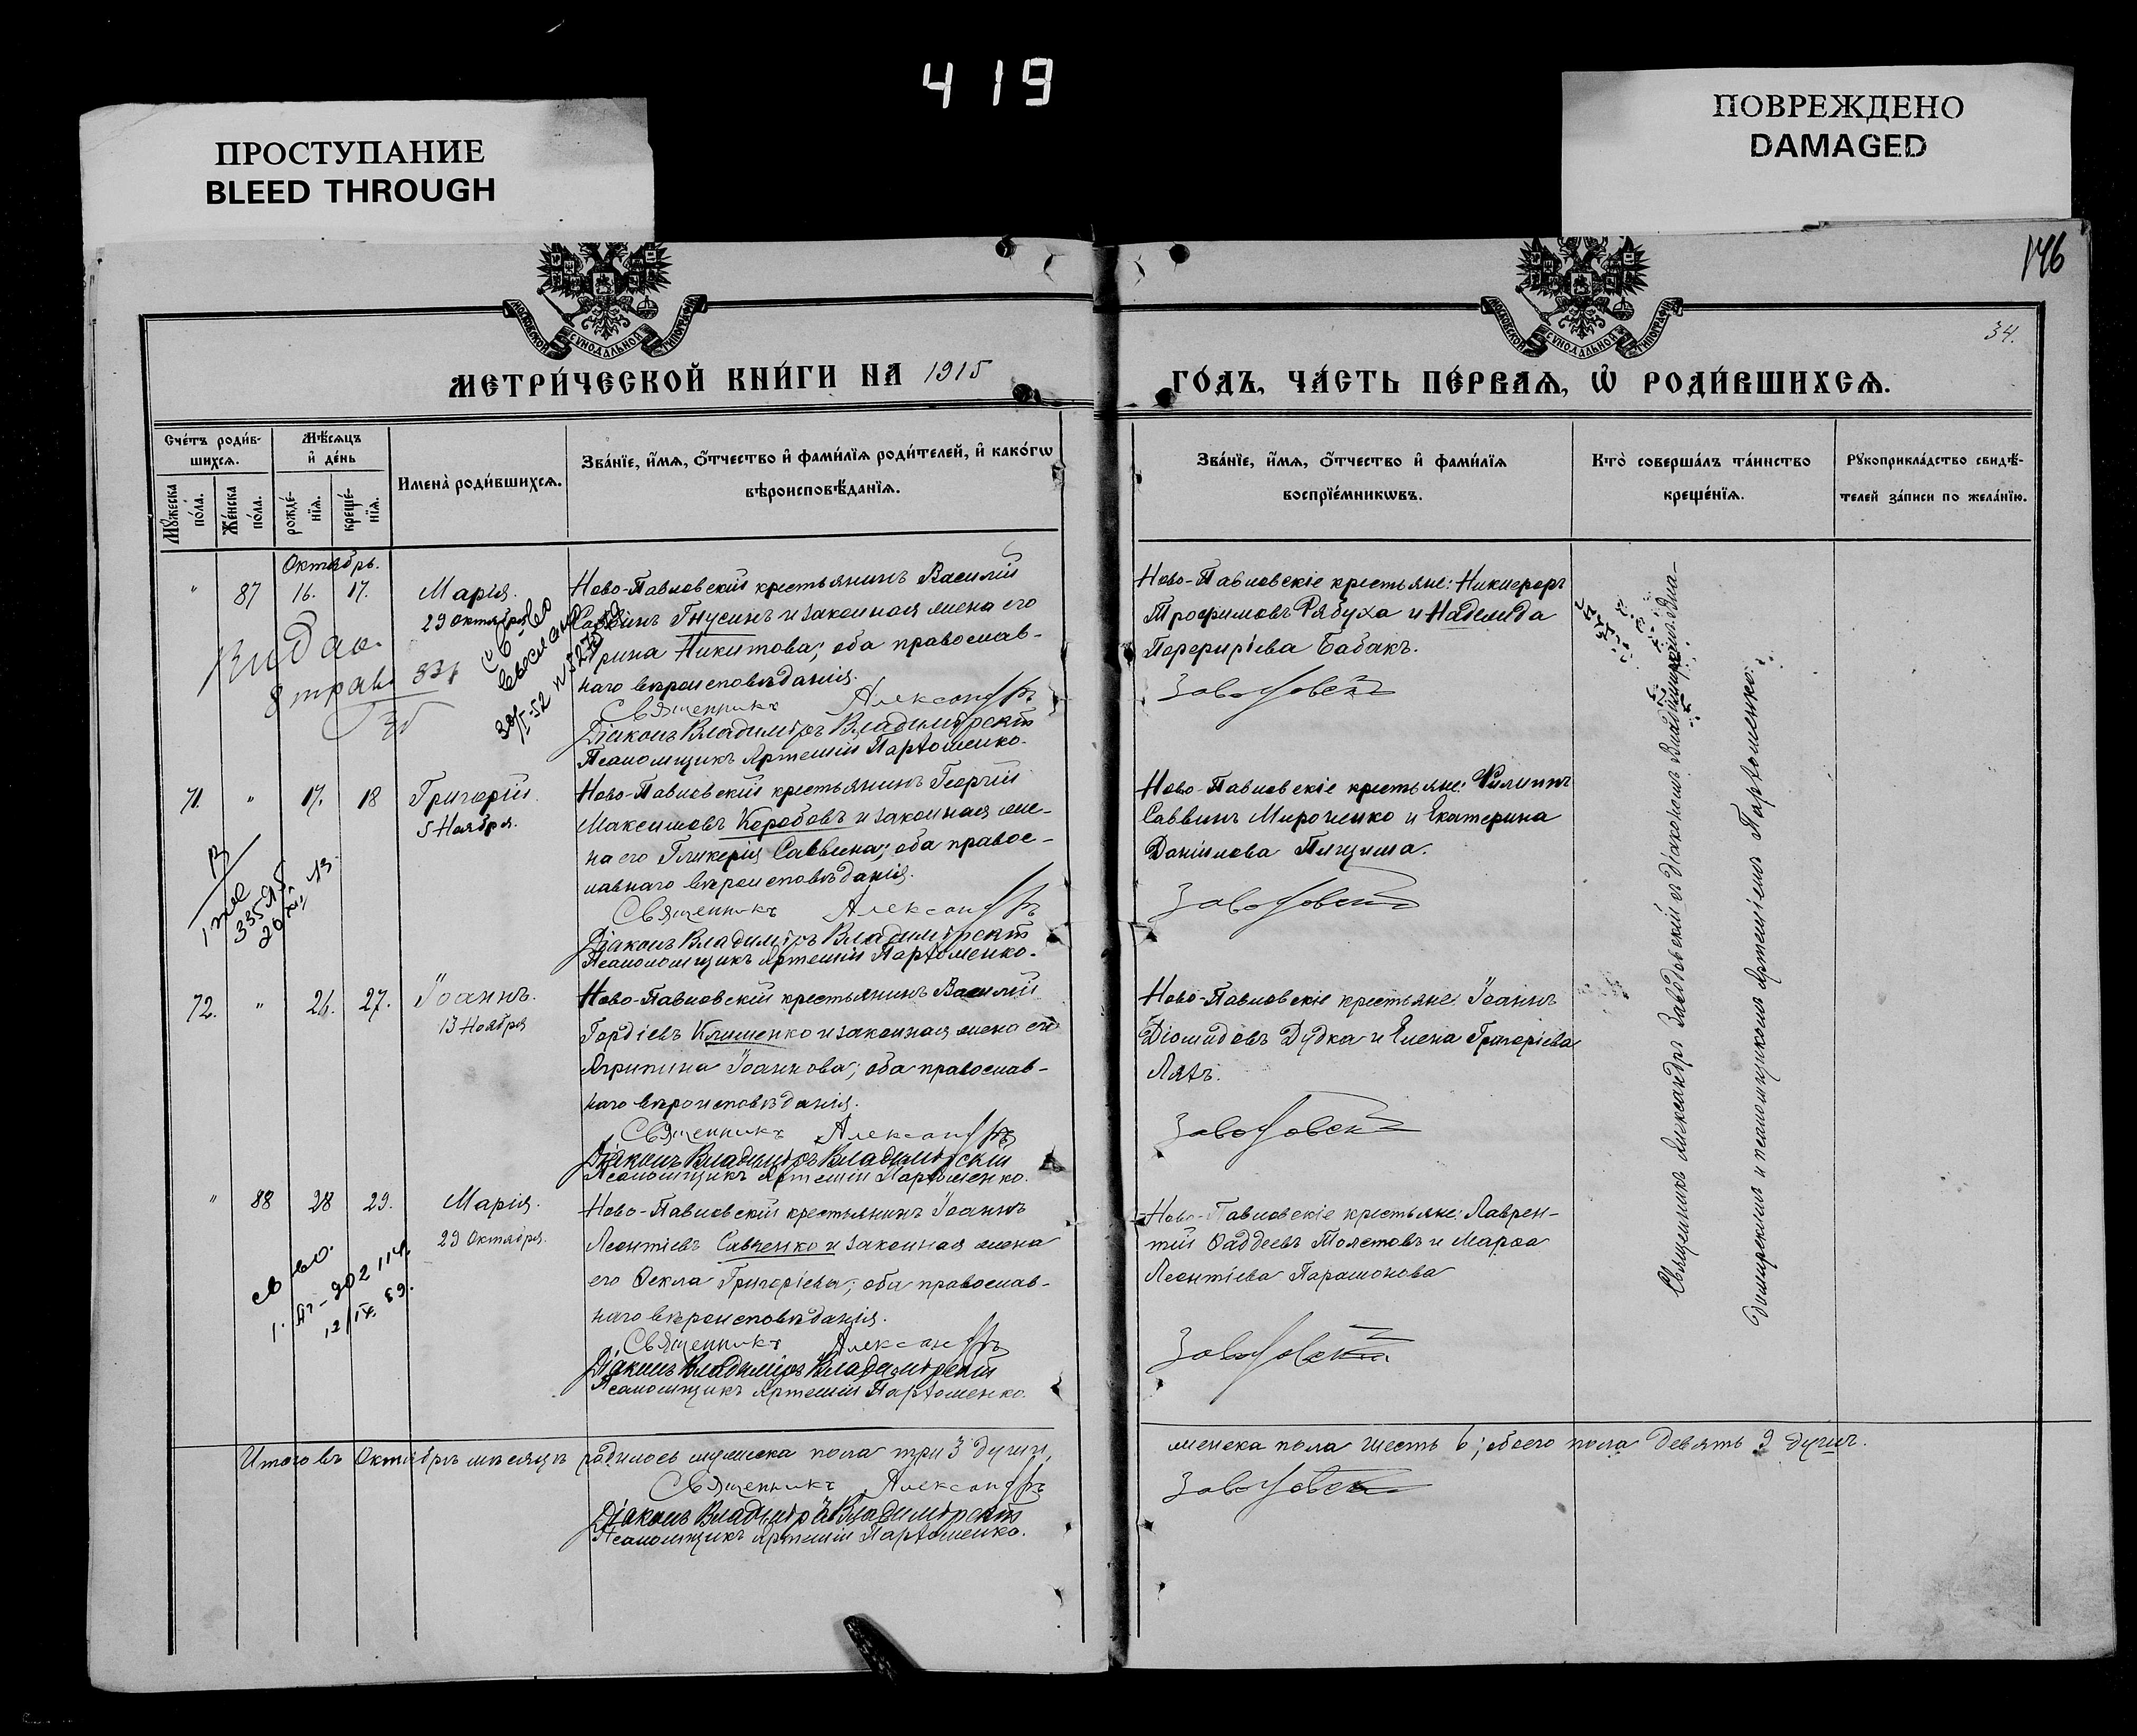 419
ПРОСТУПАНИЕ
BLEED THROUGH
ПОВРЕЖДЕНО
DAMAGED
146
34.
МОСКОВСКОЙ СѴНОДАЛЬНОЙ ТИПОГРАФІИ
МОСКОВСКОЙ СѴНОДАЛЬНОЙ ТИПОГРАФІИ
МЕТРИ́ЧЕСКОЙ КНИ́ГИ НА 1915
ГО́ДЪ, ЧА́СТЬ ПЕ́РВАѦ, Ѡ҆ РОДИ́ВШИХСѦ.
Счéтъ роди́в-
шихсѧ.
Мѣ́сѧцъ
и҆ дéнь
Мꙋ́жеска
по́ла.
Жéнска
по́ла.
рождé-
нїѧ.
крещé-
нїѧ.
Именà роди́вшихсѧ.
Звáнїе, и҆́мѧ, ѻ҆́тчество и҆ фами́лїѧ роди́телей, и҆ какóгѡ
вѣроисповѣ́данїѧ.
Звáнїе, и҆́мѧ, ѻ҆́тчество и҆ фами́лїѧ
воспрїéмникѡвъ.
Кто̀ совершáлъ тáинство
крещéнїѧ.
Рꙋкоприклáдство свидѣ́-
телей зáписи по желáнїю.
Октябрь.
" 87 16. 17. Марія.
29 Октября
Ново-Павловскій крестьянинъ Василій
Саввинъ Гнусинъ и законная жена его
Ирина Никитова; оба православ-
наго вѣроисповѣданія.
Священникъ Александръ
Діаконъ Владиміръ Владимірскій
Псаломщикъ Артемій Парѳоменко.
Ново-Павловскіе крестьяне: Никифоръ
Трофимовъ Рябуха и Надежда
Порфиріева Бабакъ.
Заводовскій
Видао.
71. " 17. 18 Григорій.
5 Ноября.
Ново-Павловскій крестьянинъ Георгій
Максимовъ Коробовъ и законная же-
на его Гликерія Саввина; оба правос-
лавнаго вѣроисповѣданія.
Священникъ Александръ
Діаконъ Владиміръ Владимірскій
Псаломщикъ Артемій Парѳоменко.
Ново-Павловскіе крестьяне: Филиппъ
Саввинъ Мироненко и Екатерина
Даніилова
Заводовскій
72. " 26. 27. Іоаннъ.
13 Ноября
Ново-Павловскій крестьянинъ Василій
Гордіевъ Клименко и законная жена его
Агрипина Іоаннова; оба православ-
наго вѣроисповѣданія.
Священникъ Александръ
Діаконъ Владиміръ Владимірскій
Псаломщикъ Артемій Парѳоменко.
Ново-Павловскіе крестьяне: Іоаннъ
Діомидовъ Дудка и Елена Григоріева
Заводовскій
" 88 28 29. Марія.
29 Октября.
Ново-Павловскій крестьянинъ Іоаннъ
Леонтіевъ Савченко и законная жена
его Ѳекла Григоріева; оба православ-
наго вѣроисповѣданія.
Священникъ Александръ
Діаконъ Владиміръ Владимірскій
Псаломщикъ Артемій Парѳоменко.
Ново-Павловскіе крестьяне: Лаврен-
тій Ѳаддеевъ Толстовъ и Марѳа
Леонтіева Парамонова
Заводовскій
Священникъ Александръ Заводовскій съ діакономъ Владиміромъ Вла-
димірскимъ и псаломщикомъ Артеміемъ Парѳоменко.
Итого въ Октябрѣ мѣсяцѣ родилось мужеска пола три 3 души,
женска пола шесть 6; обоего пола девять 9 душъ.
Священникъ Александръ
Заводовскій
Діаконъ Владиміръ Владимірскій
Псаломщикъ Артемій Парѳоменко.